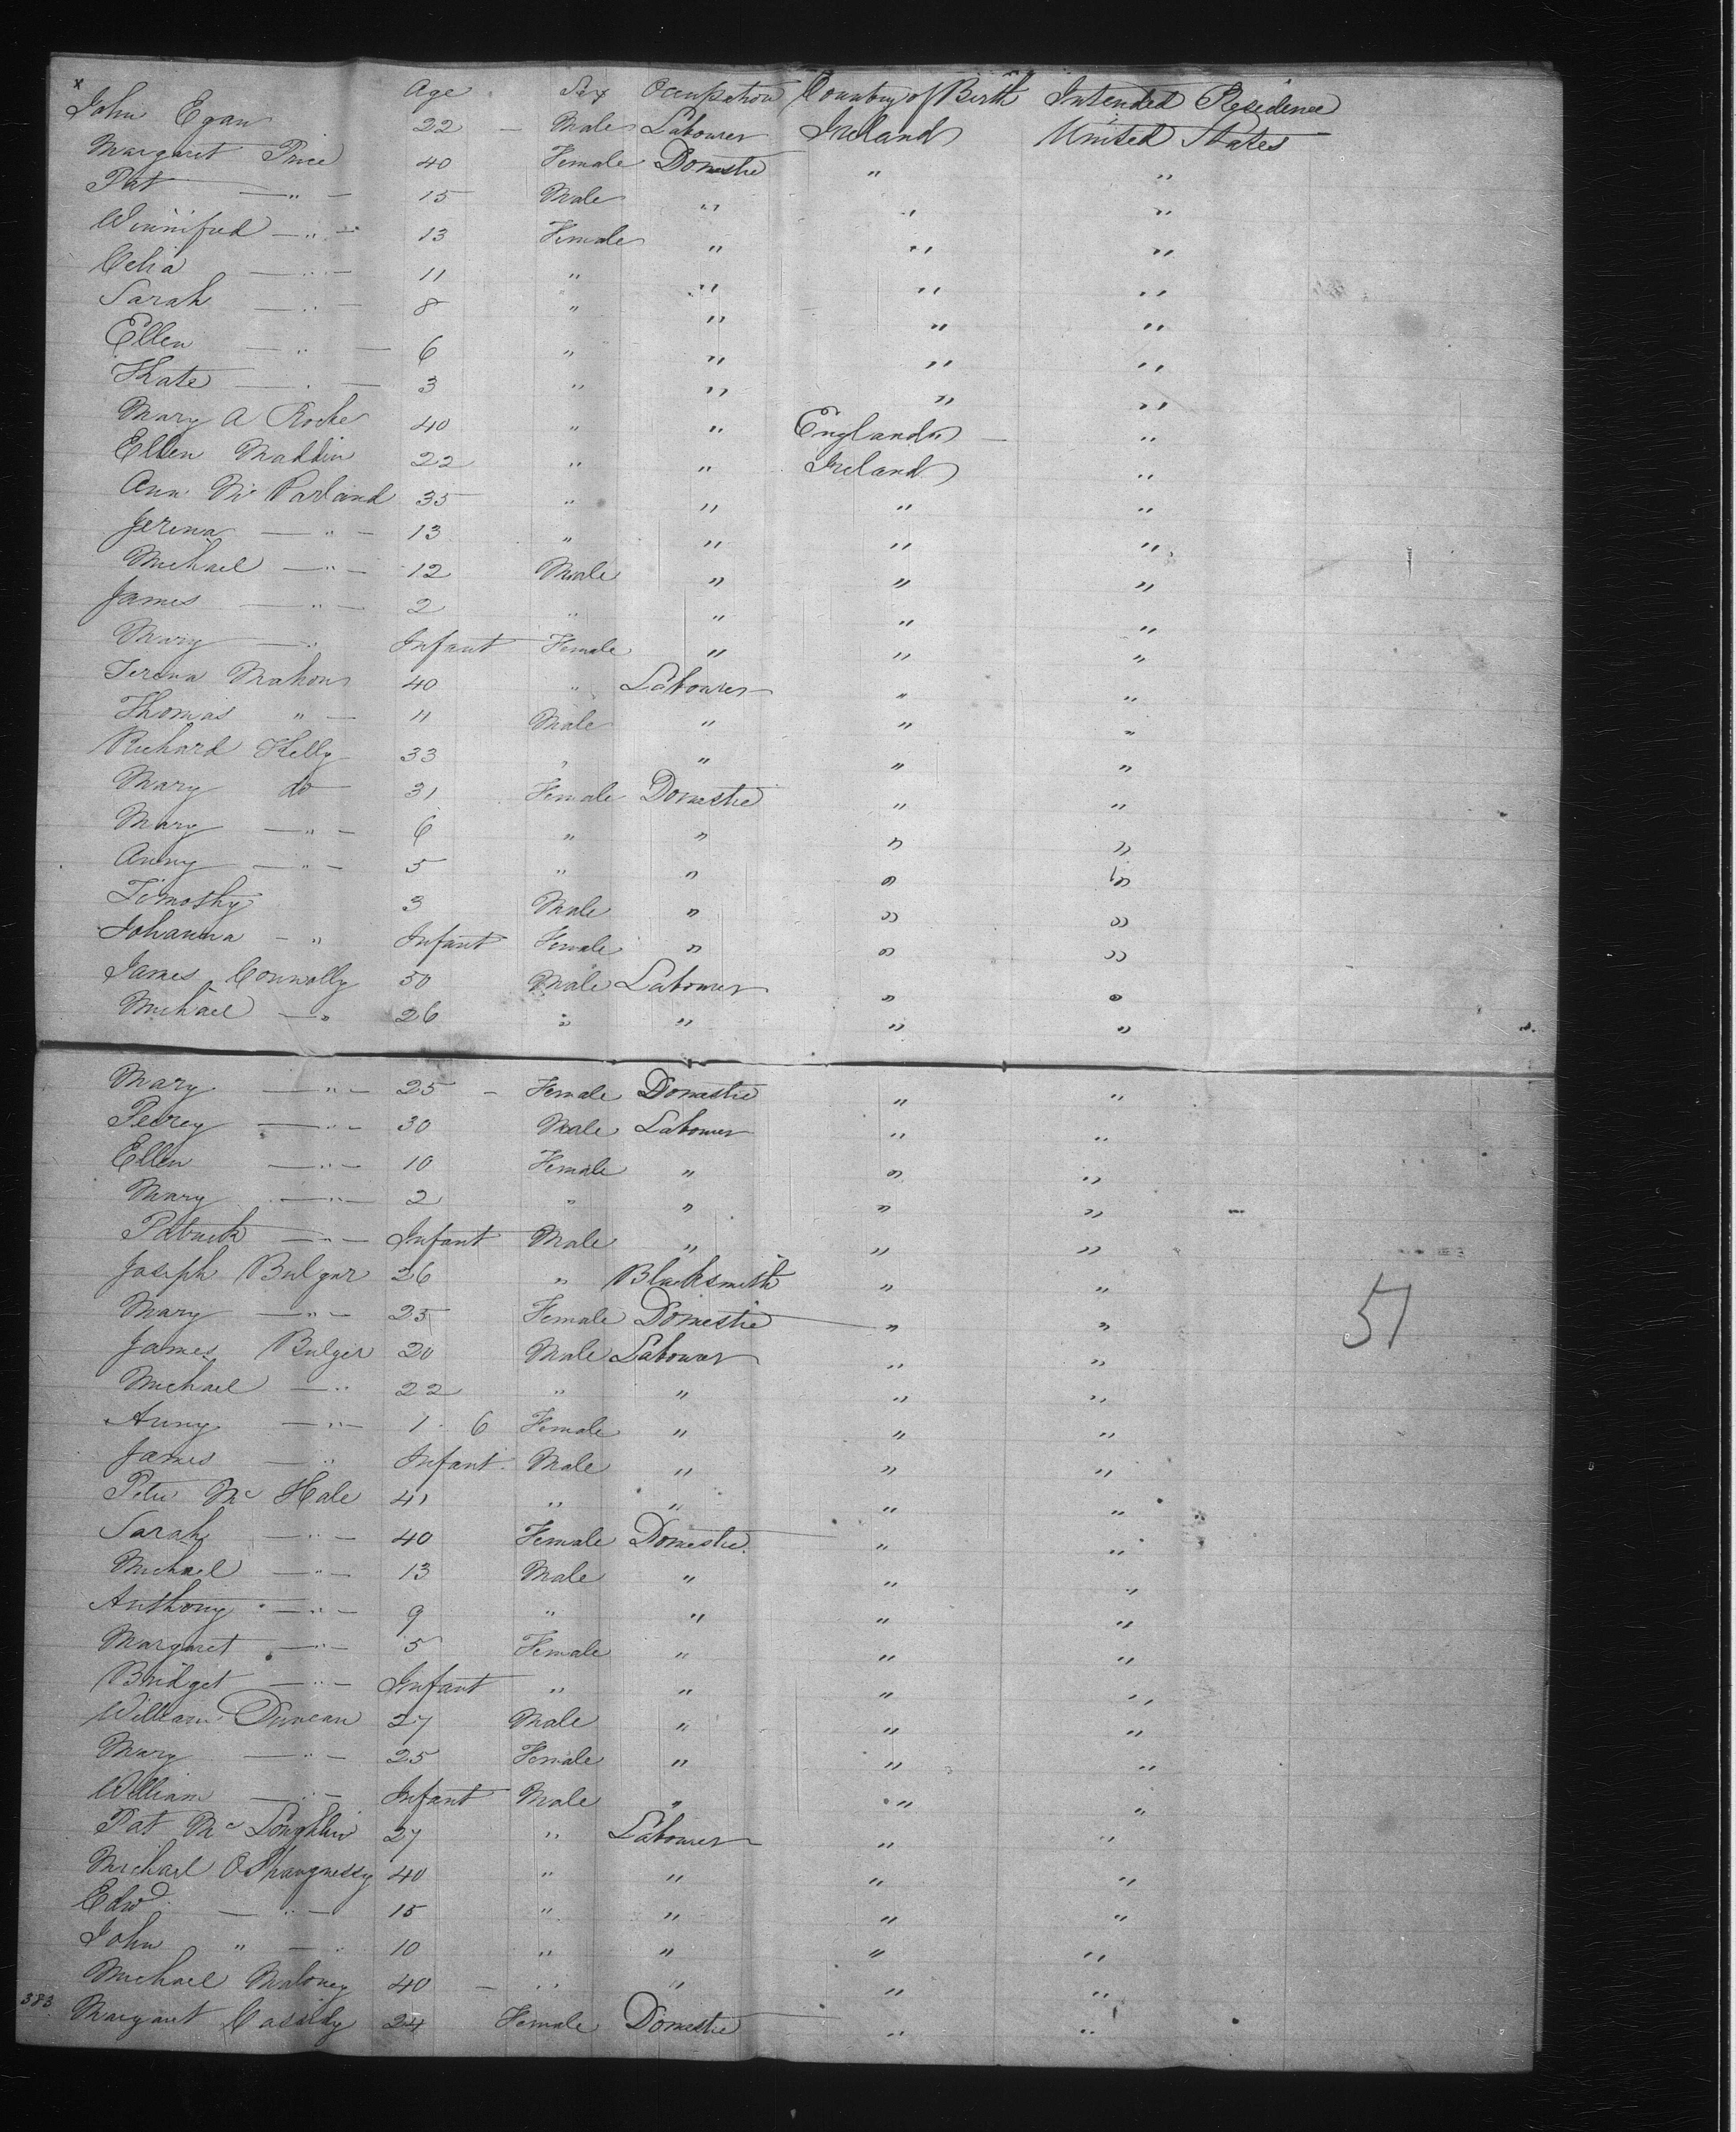 x Age Sex Occupation Country of Birth Intended Residence
John Egan 22 - Male Labourer Ireland United States
Margaret Price 40 Female Domestic " "
Pat — " — 15 Male " " "
Winnifred — " — 13 Female " " "
Celia — " — 11 " " " "
Sarah — " — 8 " " " "
Ellen — " — 6 " " " "
Kate — " — 3 " " " "
Mary A Roche 40 " " England — "
Ellen Maddin 22 " " Ireland "
Ann Mc Parland 35 " " " "
— " — 13 " " " "
Michael — " — 12 Male " " "
James — " — 2 " " " "
Mary — " Infant Female " " "
Mahon 40 " Labourer " "
Thomas " — 11 Male " " "
Richard Kelly 33 " " " "
Mary do 31 Female Domestic " "
Mary — " — 6 " " " "
Anny — " — 5 " " " "
Timothy 3 Male " " "
Johanna — " Infant Female " " "
James Connolly 50 Male Labourer " "
Michael — " 26 " " " "
Mary — " — 25 - Female Domestic " "
— " — 30 Male Labourer " "
Ellen — " — 10 Female " " "
Mary — " — 2 " " " "
Patrick — " — Infant Male " " "
Joseph Bulger 26 " Blacksmith " "
Mary — " — 25 Female Domestic " "
51
James Bulger 20 Male Labourer " "
Michael — " 22 " " " "
Anny — " — 1 - 6 Female " " "
James — " Infant Male " " "
Peter Mc Hale 41 " " " "
Sarah — " — 40 Female Domestic " "
Michael — " — 13 Male " " "
Anthony — " — 9 " " " "
Margaret — " — 5 Female " " "
Bridget — " — Infant " " " "
William Duncan 27 Male " " "
Mary — " — 25 Female " " "
William — " — Infant Male " " "
Pat Mc Loughlin 27 " Labourer " "
Michael O Shaugnessy 40 " " " "
Edwd — " — 15 " " " "
John " — " 10 " " " "
Michael Maloney 40 — " " " "
383 Margaret Cassidy 24 Female Domestic " "